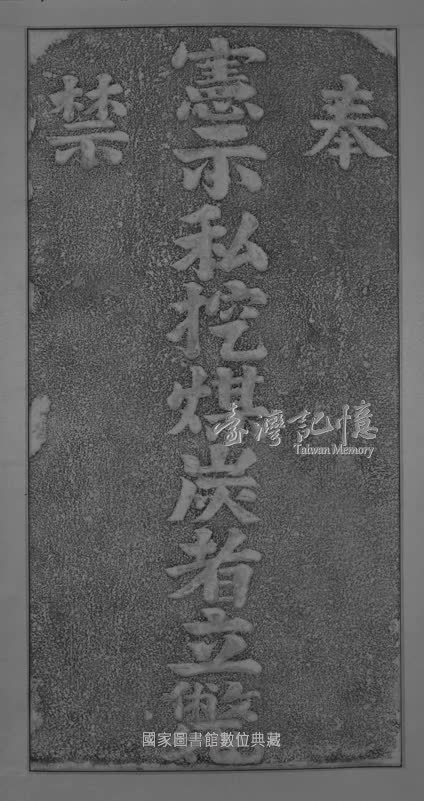 奉
憲示私挖煤炭者立斃
禁
臺灣記憶
Taiwan Memory
國家圖書館數位典藏